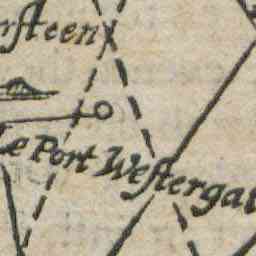 rsteen
Le Port Westerga